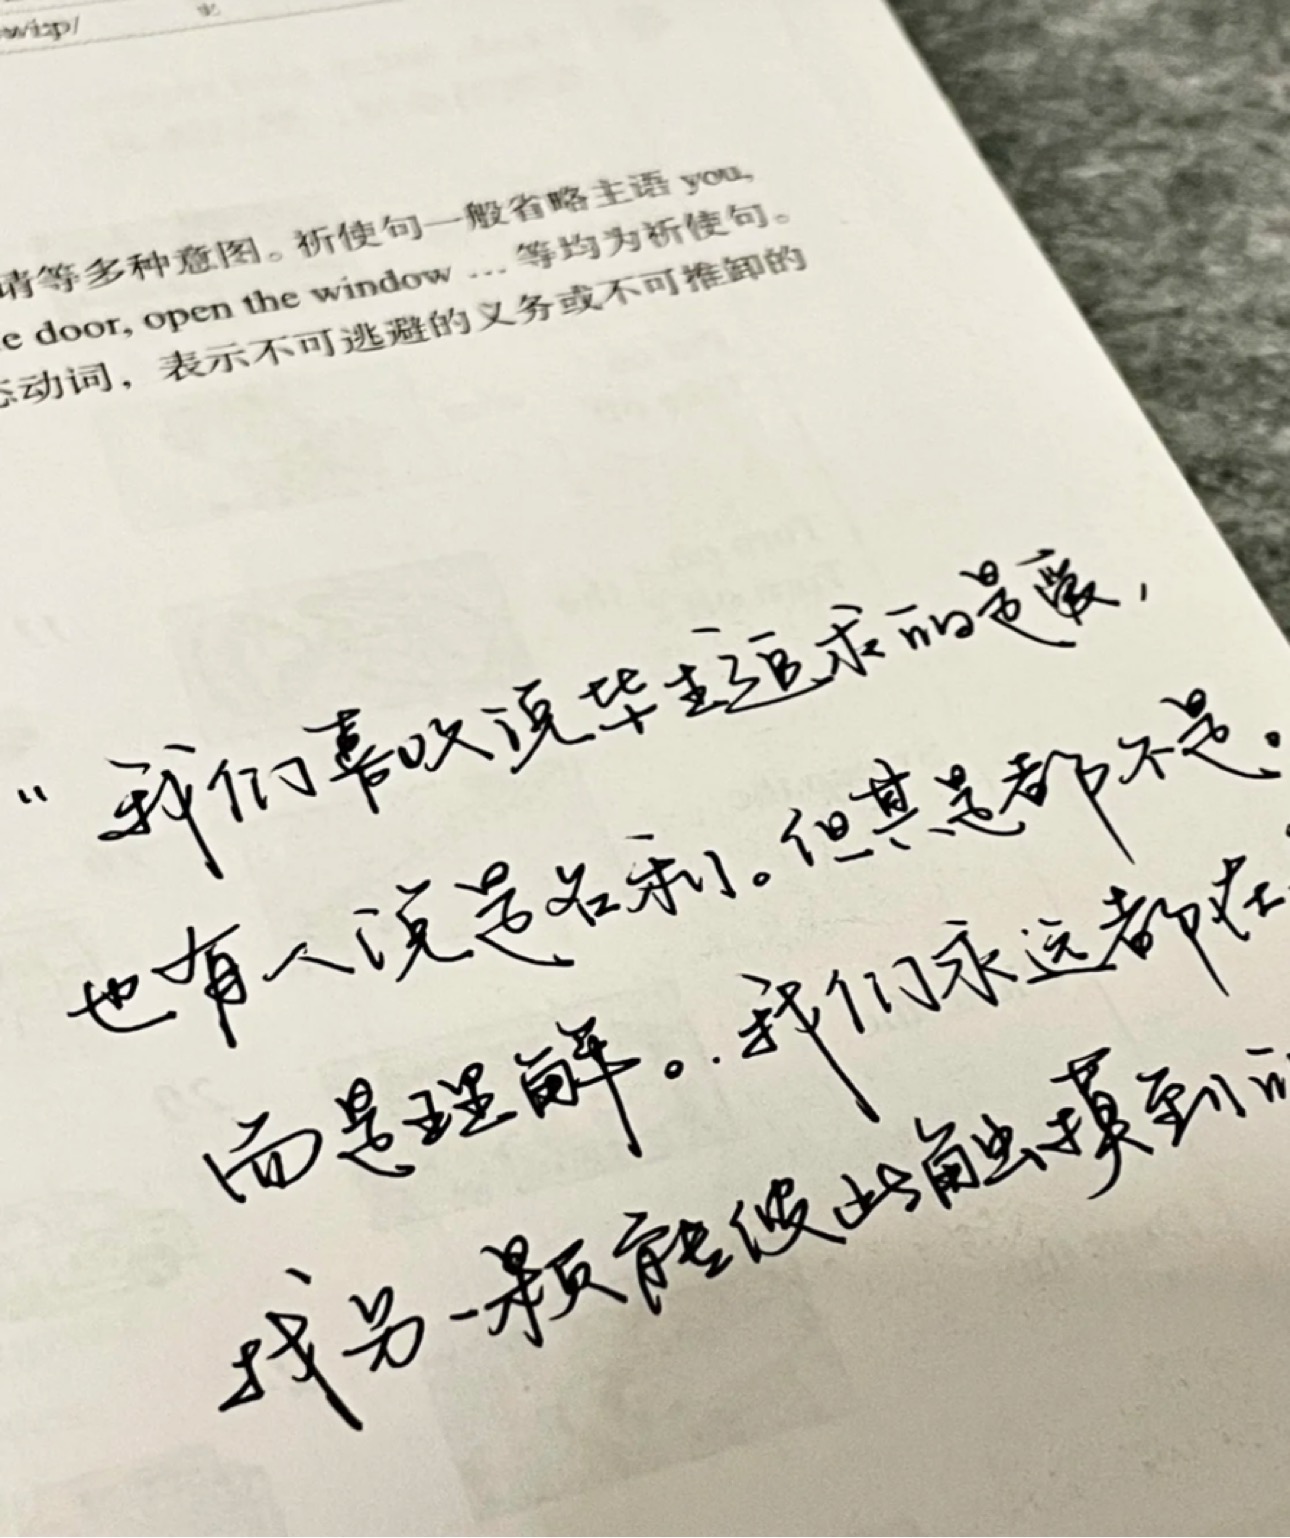 wizp/
请等多种意图。祈使句一般省略主语 you,
e door, open the window … 等均为祈使句。
态动词，表示不可逃避的义务或不可推卸的
“我们喜欢说毕生追求的是爱，
也有人说是名利。但其是都不是。
而是理解。..我们永远都在
找另一颗能彼此触摸到的